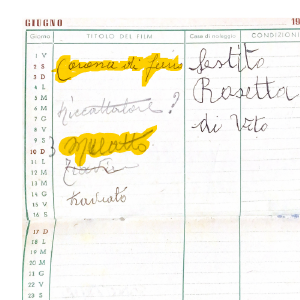 GIUGNO 19
Giorno TITOLO DEL FILM Casa di noleggio CONDIZION
1 V Sestito
2 S Corona di
3 D
4 L Rosetta
5 M
6 M Riccattatore ?
7 G di Vito
8 V
9 S Mulatto
10 D
11 L
12 M
13 M
14 G
15 V
16 S
17 D
18 L
19 M
20 M
21 G
22 V
23